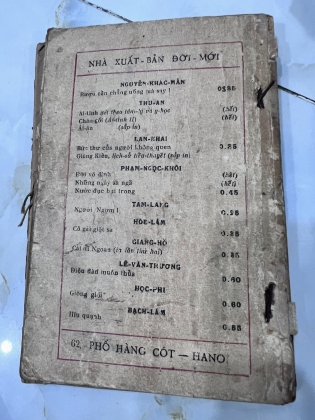 NHÀ XUẤT-BẢN ĐỜI-MỚI
NGUYỄN-KHẮC-MẪN
Rượu cần chẳng uống mà say ! 0$35
THU-AN
Ái-tình với theo tâm-lý và y-học (hết)
Chăn-gối (Ái-tình II) (hết)
Ái-ân (sắp in)
LAN-KHAI
Bức thư của người không quen 0.25
Giang Kiều, lịch-sử tiểu-thuyết (sắp in)
PHẠM-NGỌC-KHÔI
Đời vô định (hết)
Những ngày sa ngã (hết)
Nước đục bụi trong 0.45
TAM-LANG
Người Ngợm ! 0.25
HOE-LÂM
Cô gái giặt sa 0.25
GIANG-HỒ
Cái dì Ngoan (in lần thứ hai) 0.25
LÊ-VĂN-TRƯƠNG
Điệu đàn muôn thuở 0.40
HỌC-PHI
Giòng giỏi 0.60
BẠCH-LÂM
Hiu quạnh 0.55
62, PHỐ HÀNG CÓT — HANOI